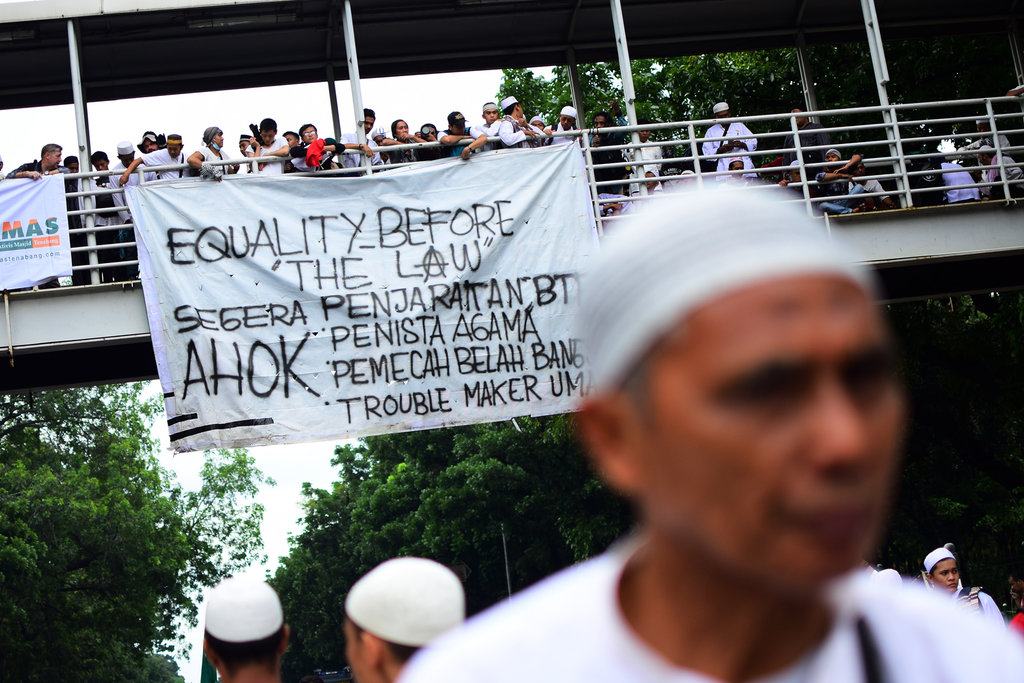 MAS
Masjid Tenabang
astenabang.com
EQUALITY BEFORE
"THE LAW"
SEGERA PENJARAKAN BT
AHOK • PENISTA AGAMA
• PEMECAH BELAH BANG
• TROUBLE MAKER UMA